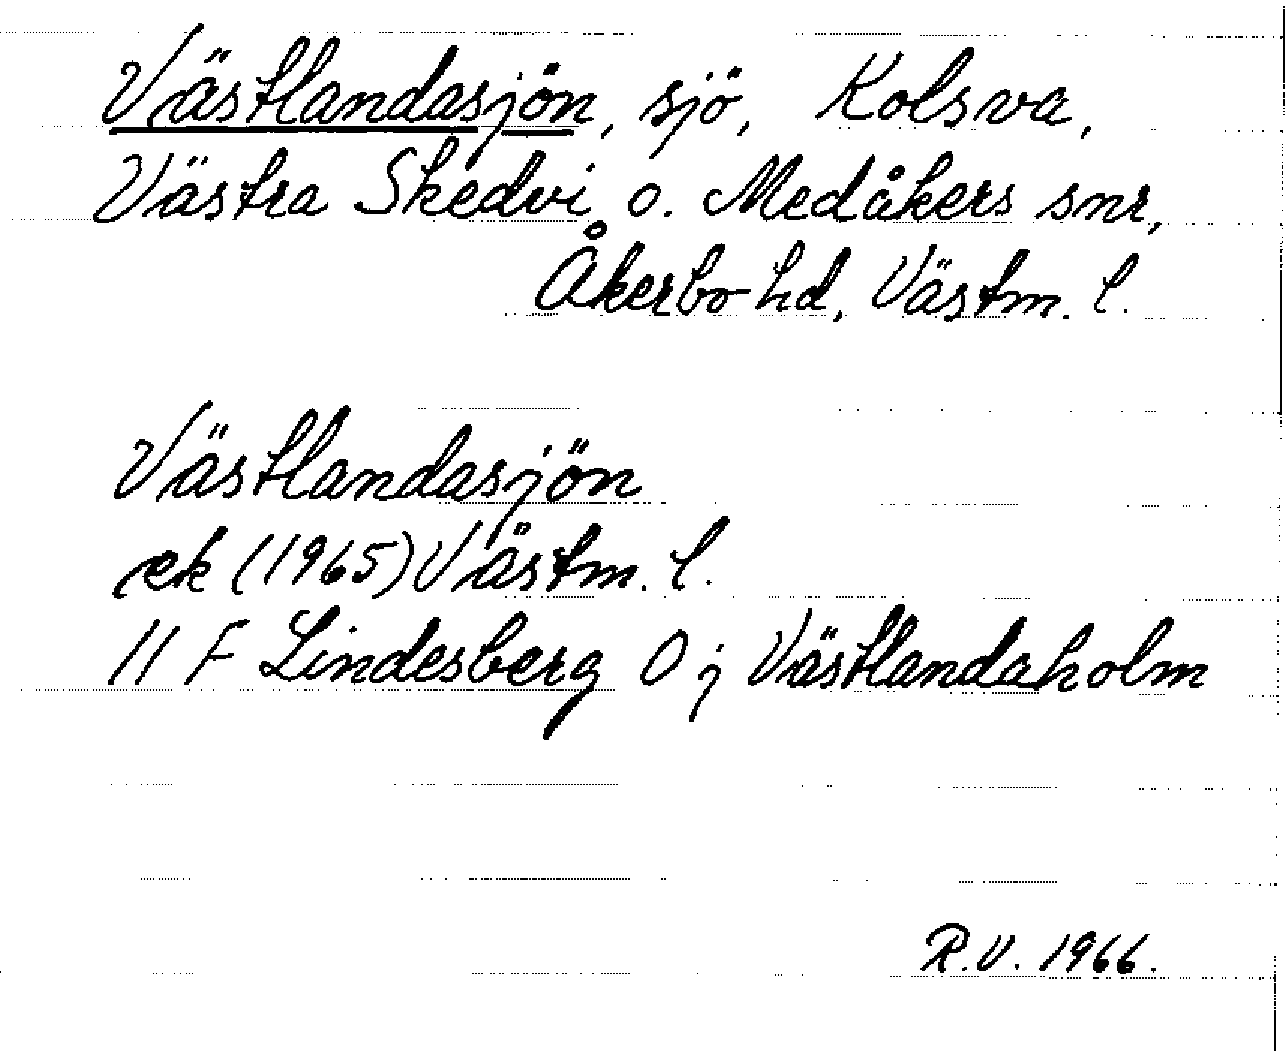 Västlandasjön, sjö, Kolsva,
Västra Skedvi o. Medåkers snr,
Åkerbo hd, Västm. l.
Västlandasjön
ek (1965) Västm. l.
11 F Lindesberg 0 j Västlandaholm
R.V. 1966.